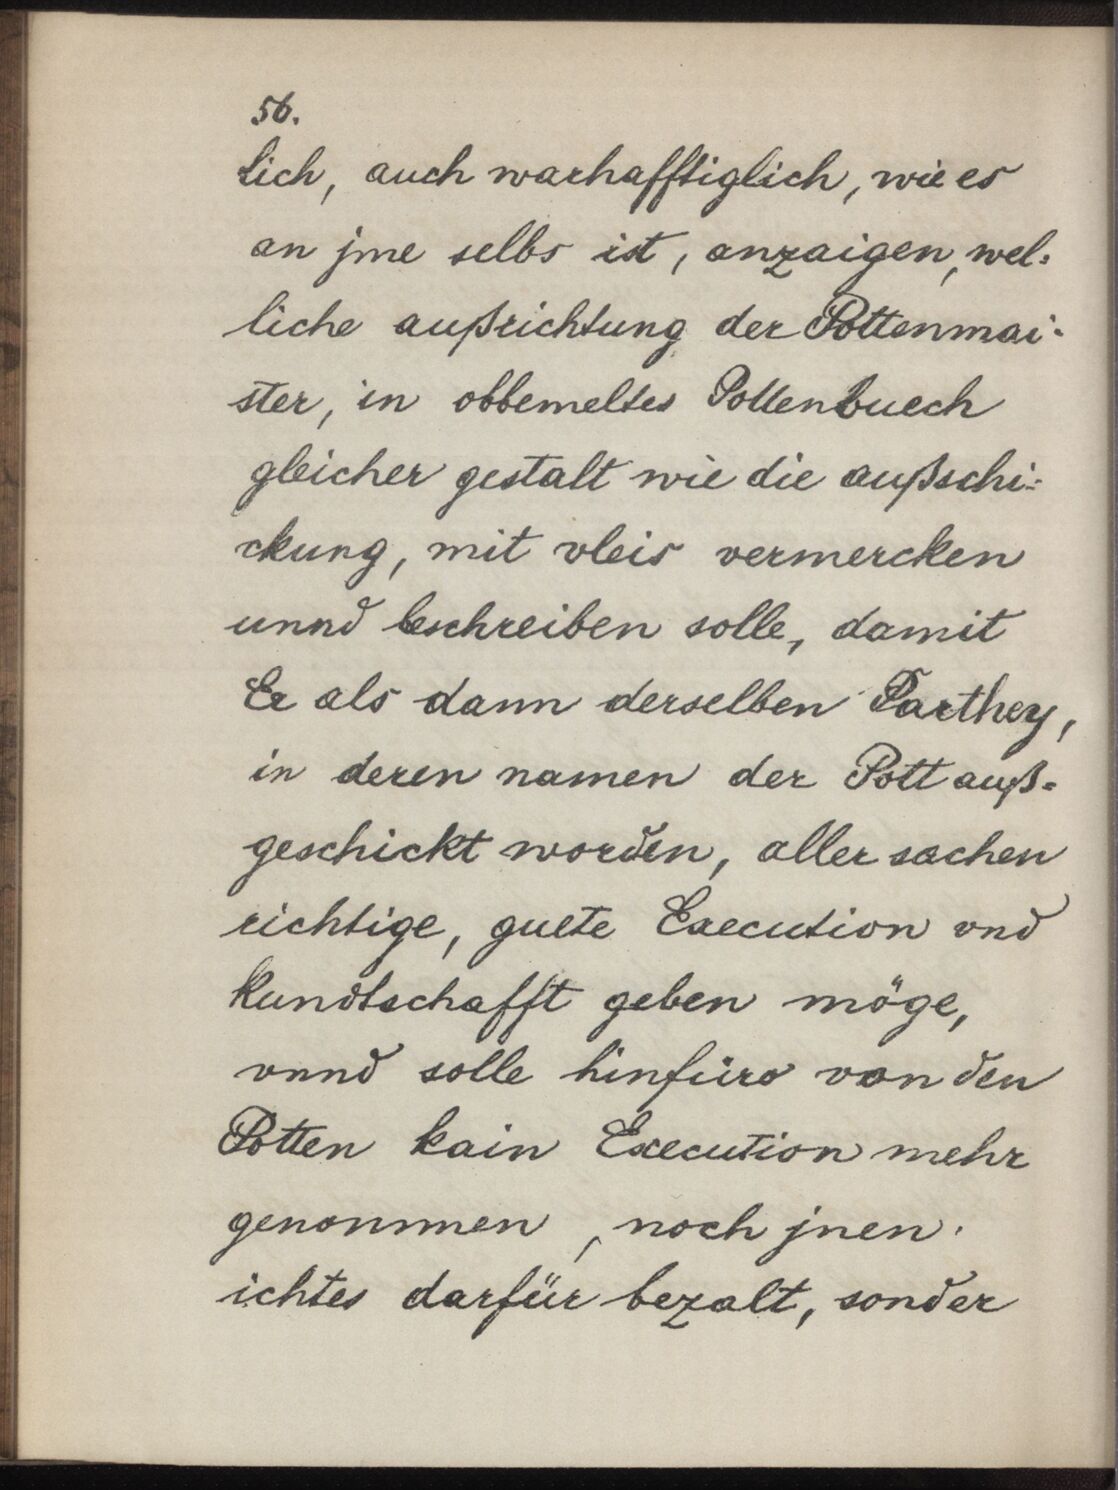 56.
lich, auch warhafftiglich, wie es
an jme selbs ist, anzaigen, wel-
liche außrichtung der Pottenmai-
ster, in obbemeltes Pottenbuech
gleicher gestalt wie die außschi-
ckung, mit vleis vermercken
unnd beschreiben solle, damit
Er als dann derselben Parthey,
in deren namen der Pott auß-
geschickt worden, aller sachen
richtige, guete Execution vnd
kundtschafft geben möge,
vnnd solle hinfüro von den
Potten kain Execution mehr
genommen, noch jnen
ichtes darfür bezalt, sonder